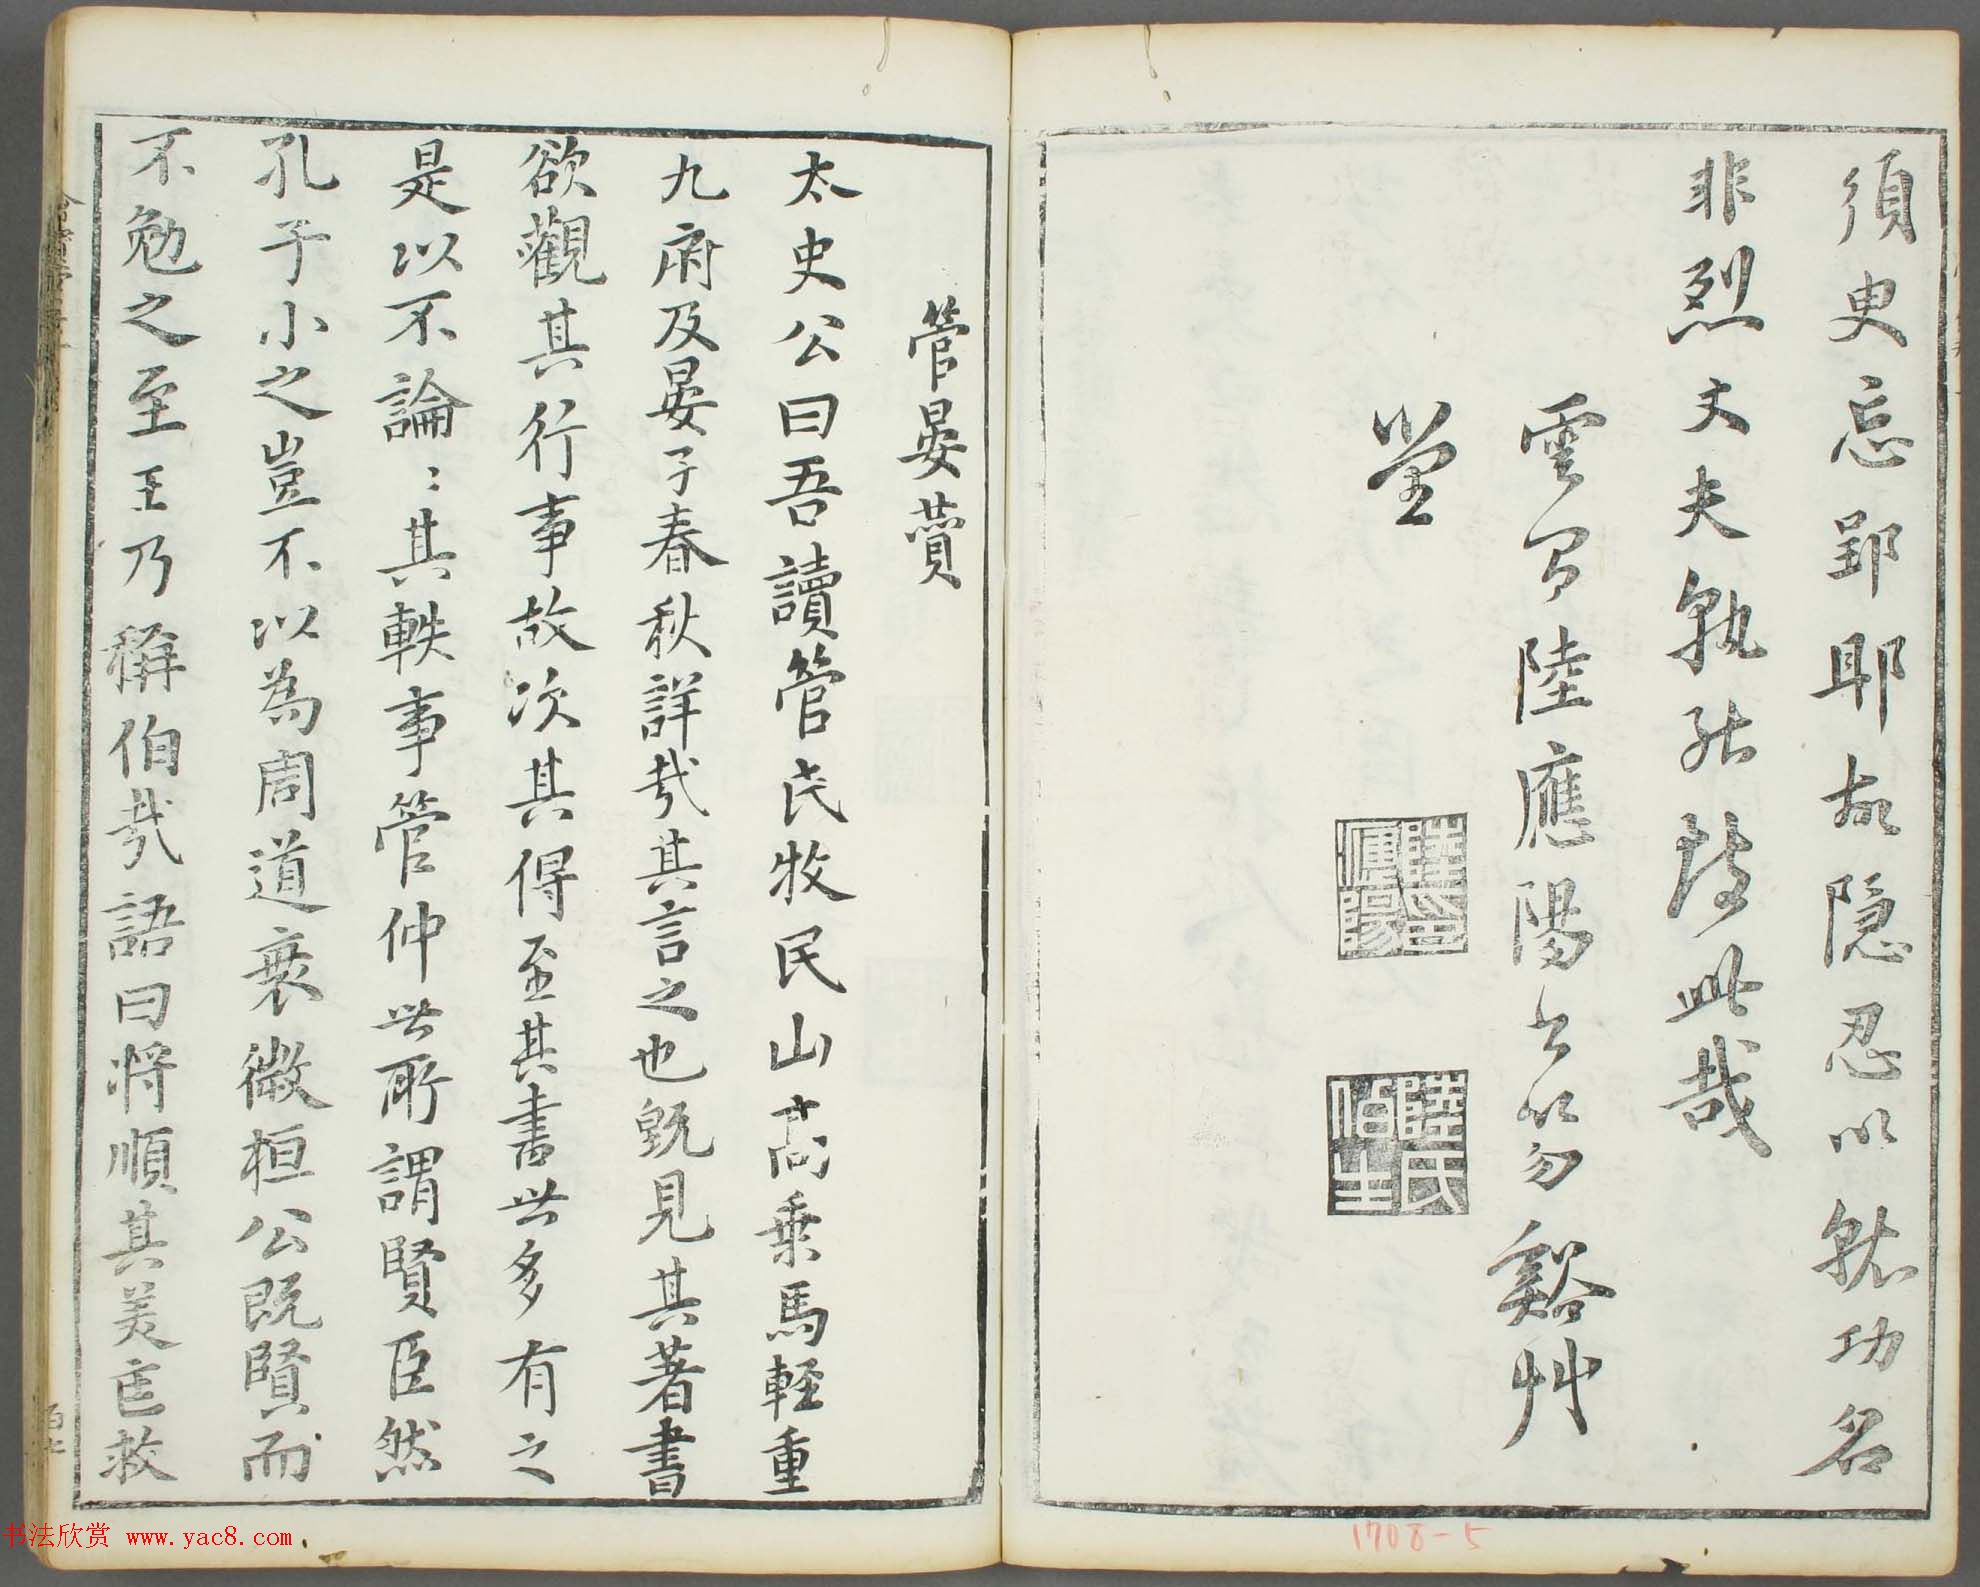 須臾忘郢耶故隐忍以就功名
非烈丈夫孰能致此哉
雲間陸應陽書於勿谿艸
堂
陸印應陽
陸氏伯生
管晏賛
太史公曰吾讀管氏牧民山高乗馬輕重
九府及晏子春秋詳哉其言之也既見其著書
欲觀其行事故次其傳至其書世多有之
是以不論〻其軼事管仲世所謂賢臣然
孔子小之豈不以為周道衰微桓公既賢而
不勉之至王乃稱伯哉語曰將順其美匡救
1708-5
书法欣赏 www.yac8.com